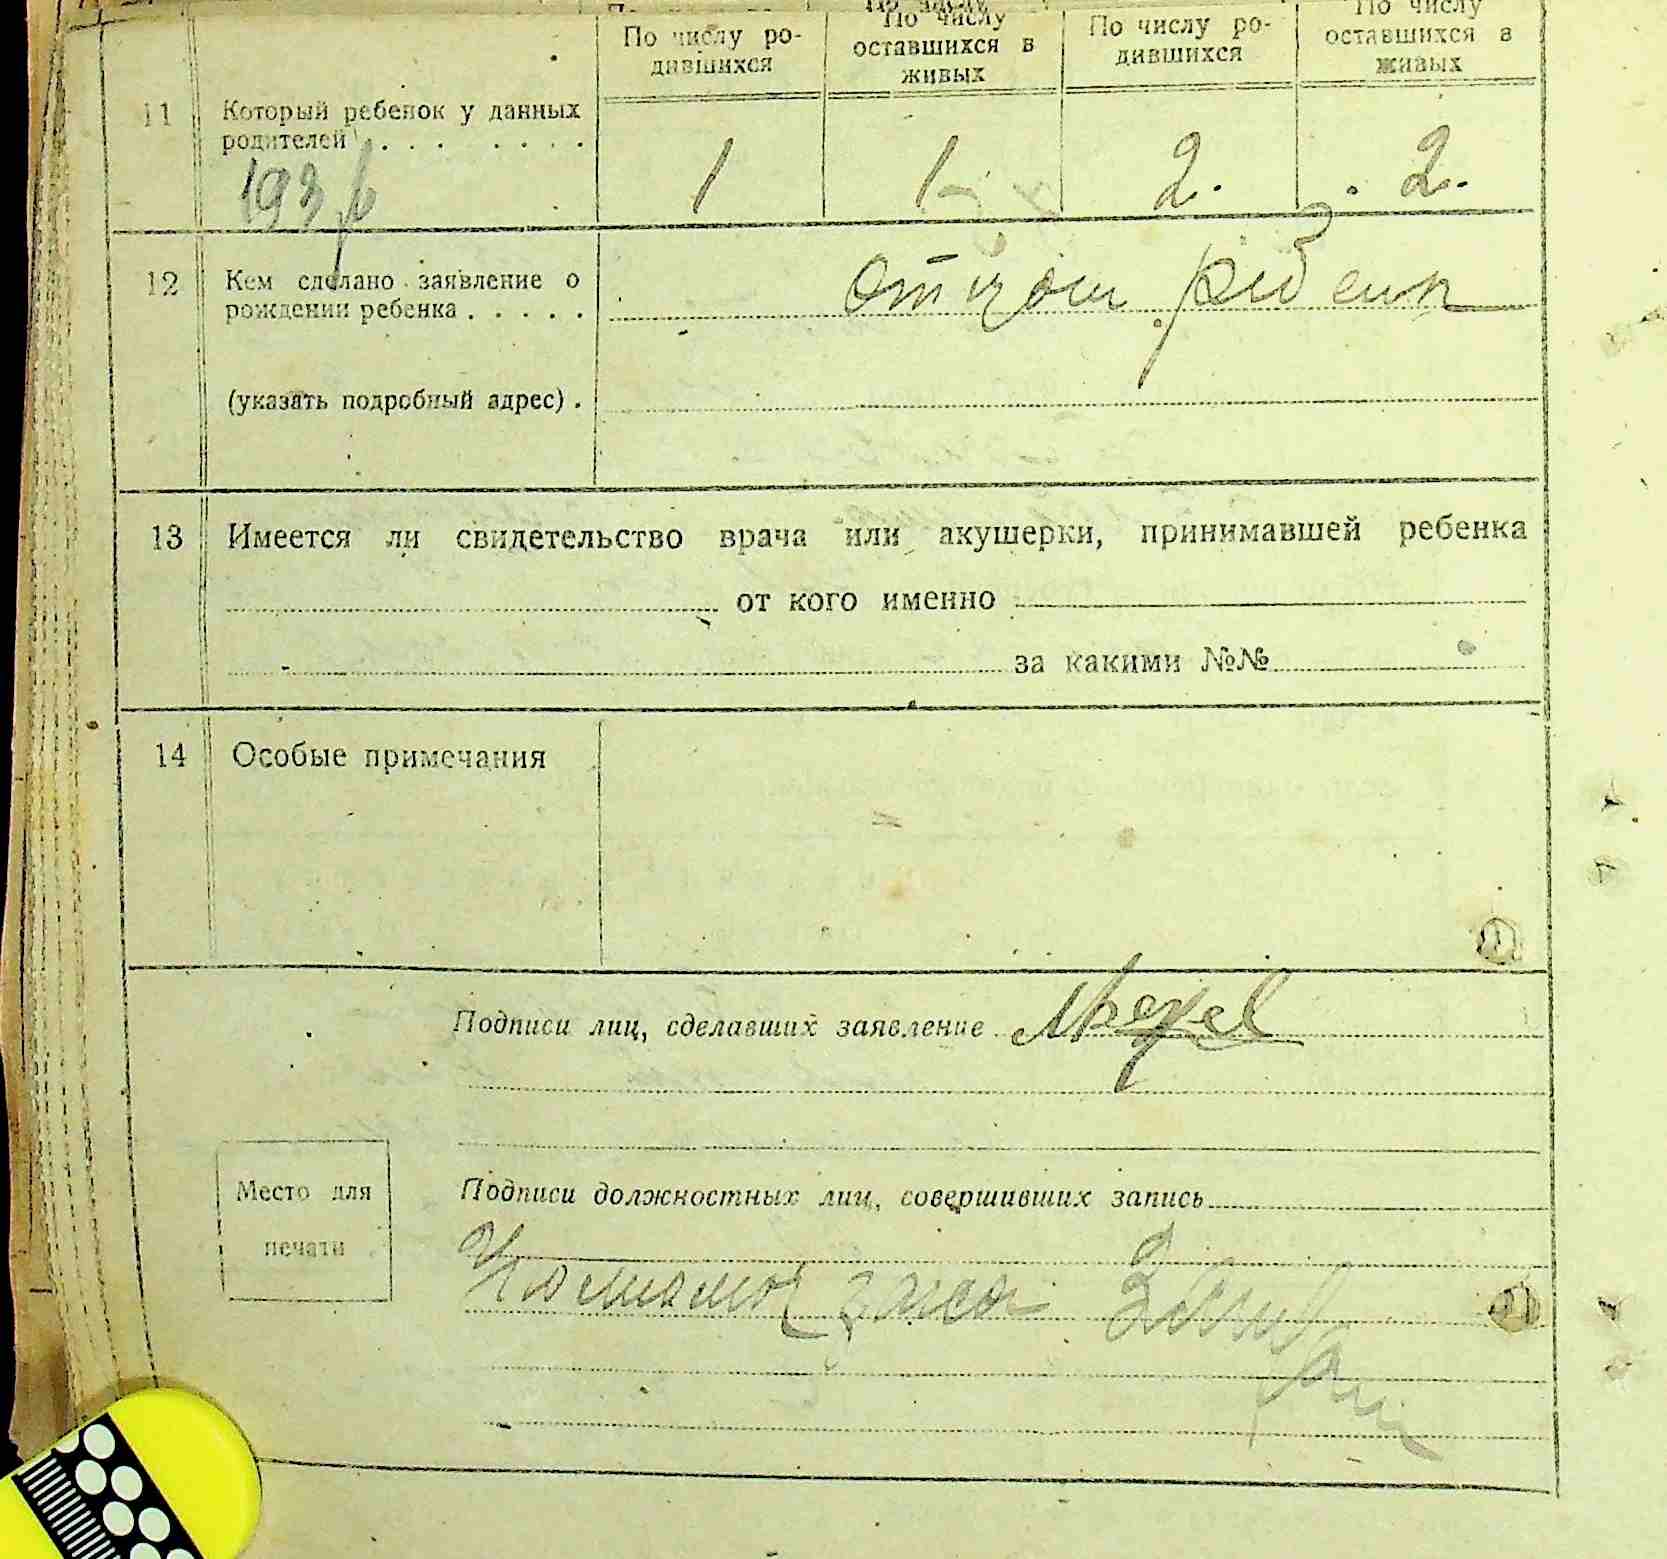 По числу ро-
дившихся
По числу
оставшихся в
живых
По числу ро-
дившихся
По числу
оставшихся в
живых
11 Который ребенок у данных
родителей . . . . . . .
1936
1 1 2. 2.
12 Кем сделано заявление о
рождении ребенка . . . . .
отцом
(указать подробный адрес) .
13 Имеется ли свидетельство врача или акушерки, принимавшей ребенка
от кого именно
за какими №№
14 Особые примечания
Подписи лиц, сделавших заявление
Место для
печати
Подписи должностных лиц, совершивших запись